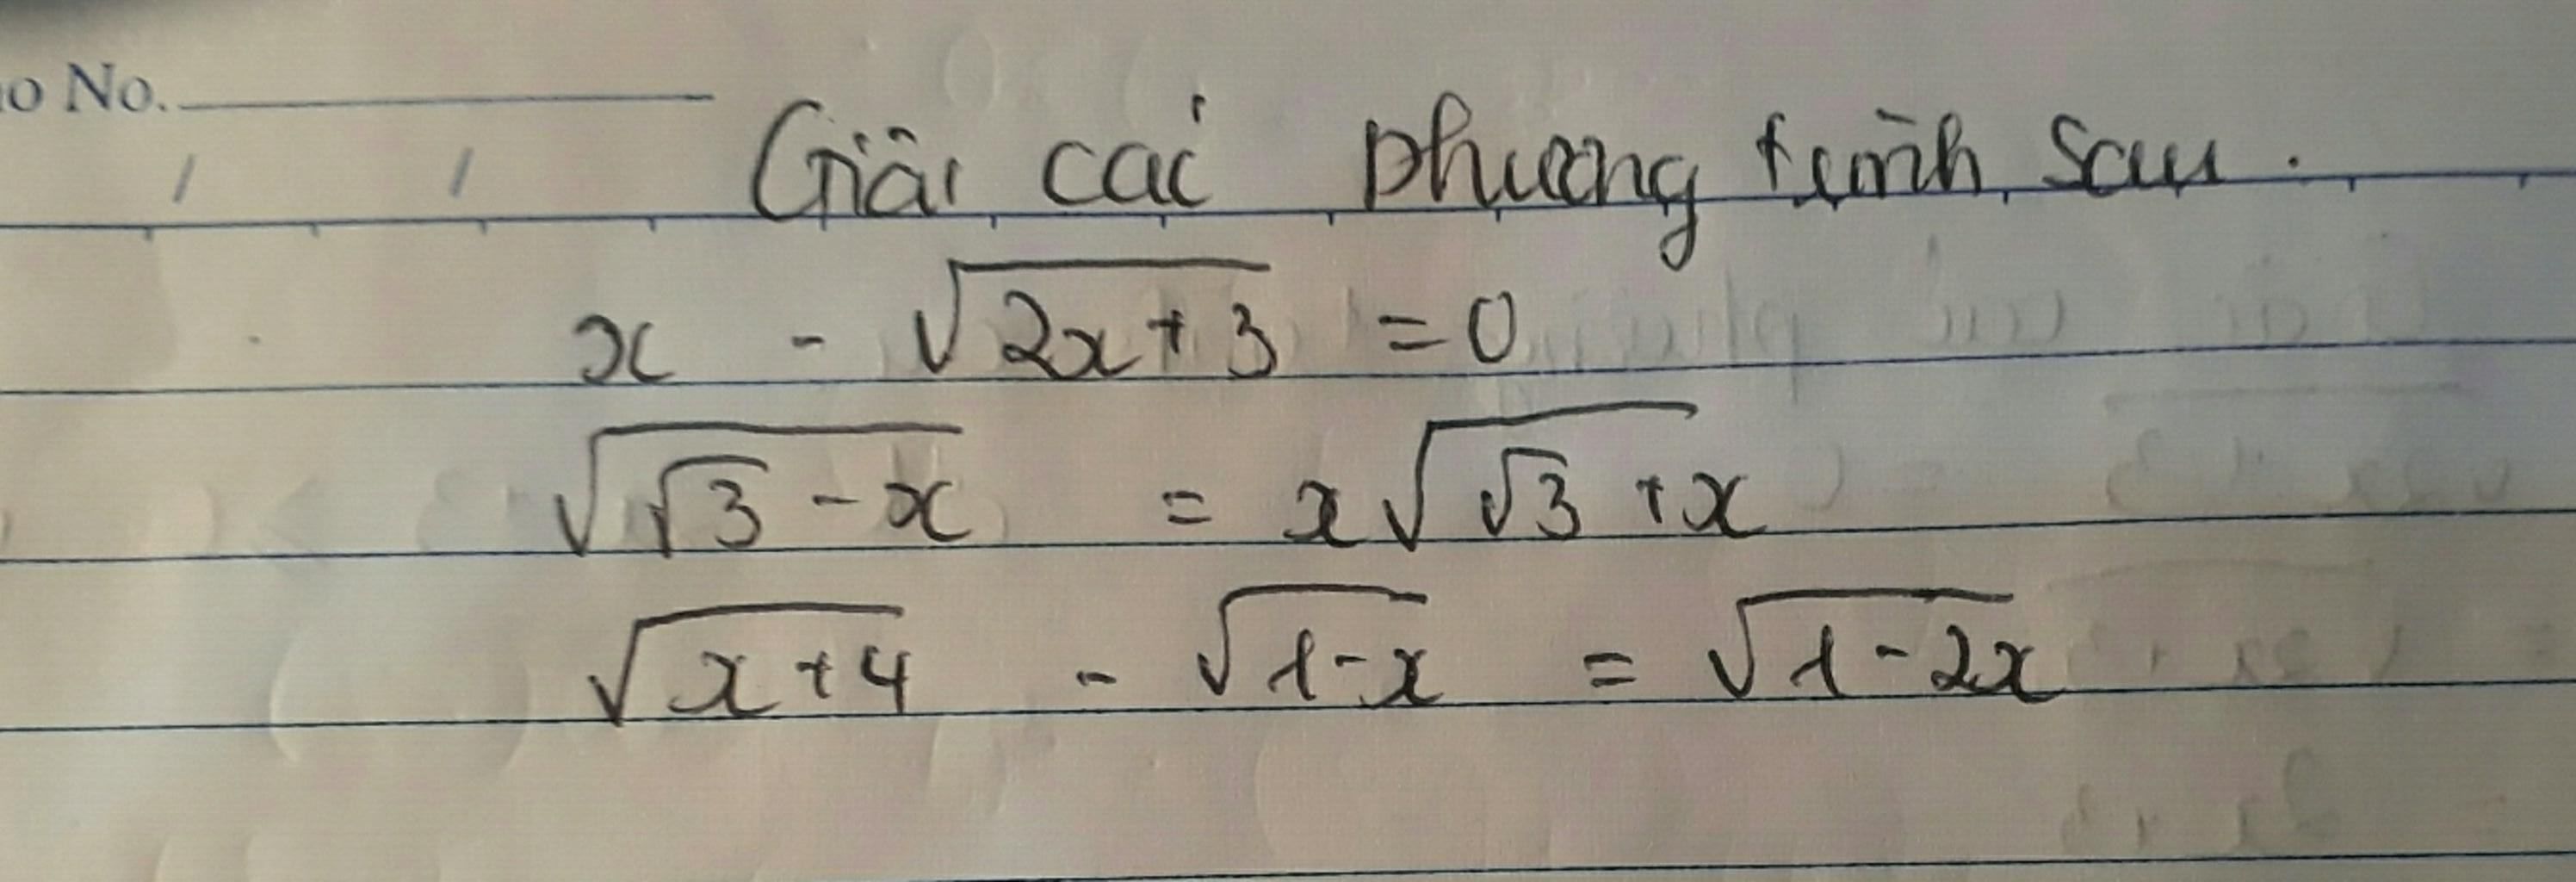 o No.
Giải các phương trình sau.
x - √(2x+3) = 0
√(√3 - x) = x√(√3 + x)
√(x+4) - √(1-x) = √(1-2x)